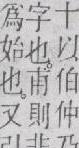 十以伯仲
字也甫則
為始也又